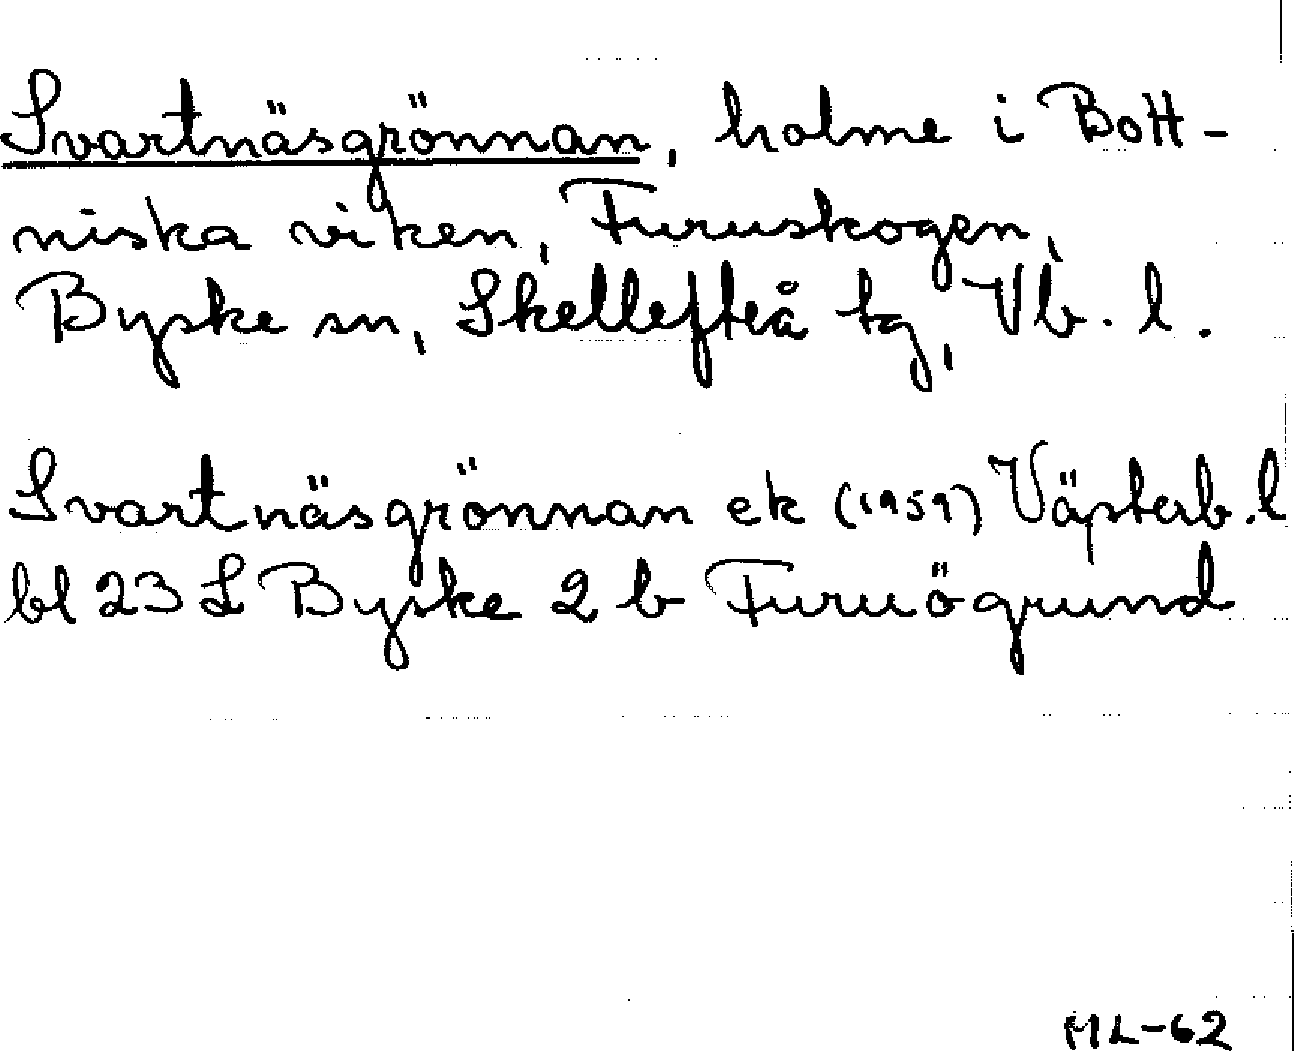 Svartnäsgrönnan, holme i Bott-
niska viken, Furuskogen,
Byske sn, Skellefteå tg, Vb. l.
Svartnäsgrönnan ek (1959) Västerb. l
bl 23 L Byske 2 b Furuögrund
ML-62